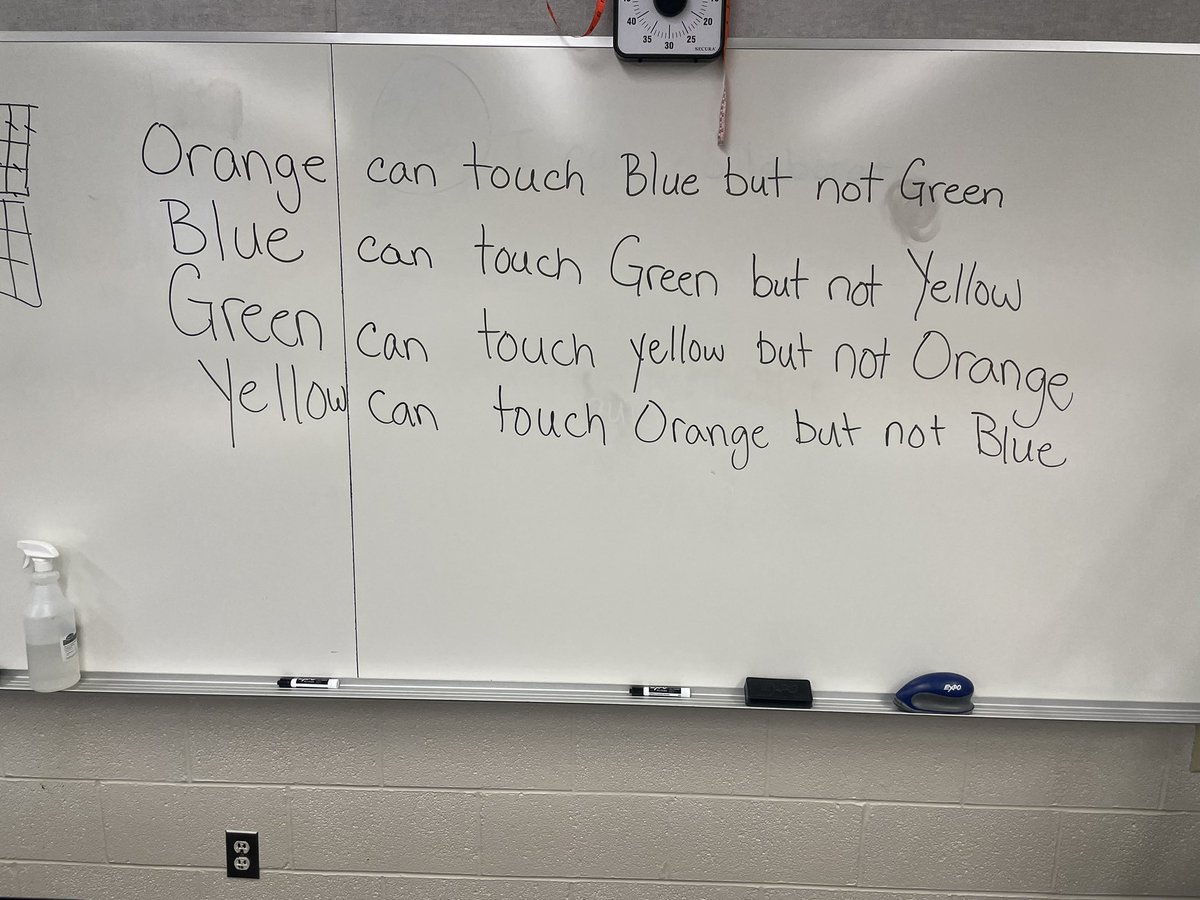 40
20
35
30
25
SECURA
Orange can touch Blue but not Green
Blue can touch Green but not Yellow
Green can touch yellow but not Orange
Yellow can touch Orange but not Blue
EXPO